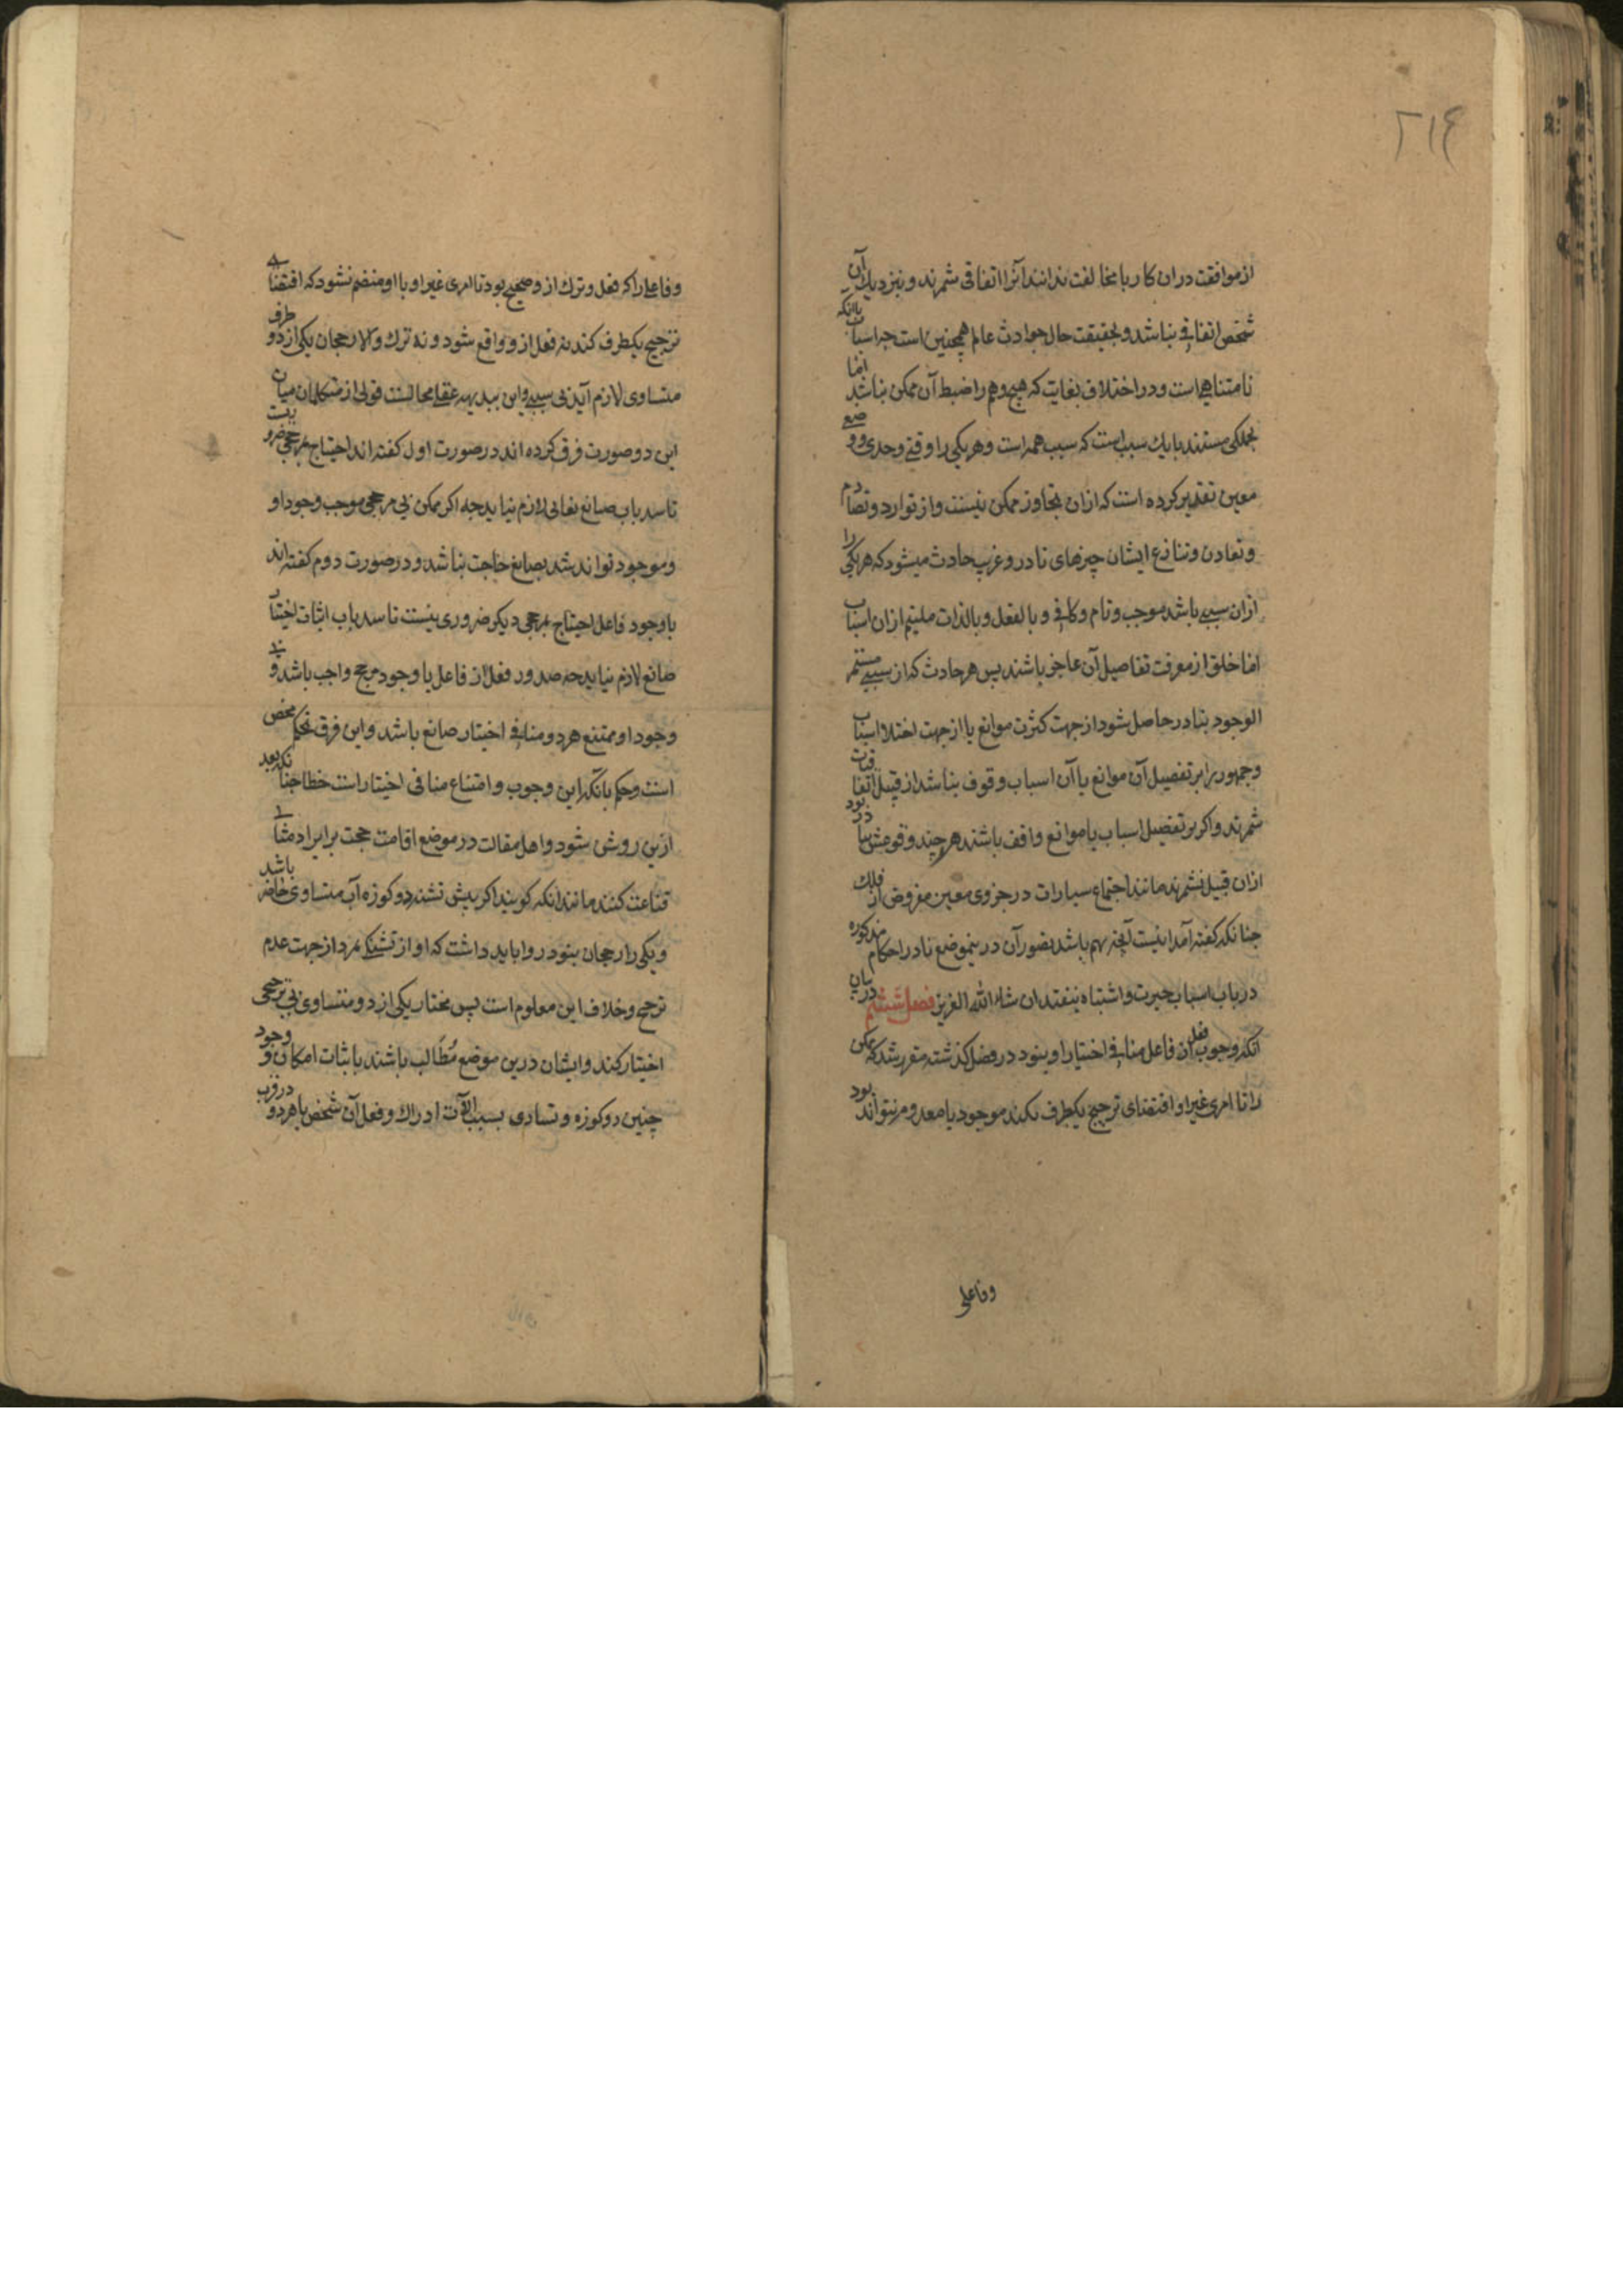 ۲۱۶
از موافقت دران کار با مخالفت ندانند آنرا اتفاقی شمرند و بنزدیک آن
شخص اتفاقی نباشد و بحقیقت حال حوادث عالم همچنین است چه اسباب با آنکه
نامتناهی است و در اختلاف بغایت که هیچ وهم را ضبط آن ممکن نباشد انها
بجملگی مستند با یک سبب است که سبب همه است و هر یکی را وقتی و حدی و وضع
معین تقدیر کرده است که ازان تجاوز ممکن نیست و از توارد و تصادم
و تعاون و تنازع ایشان چیزهای نادر و غریب حادث میشود که هر یکی را
ازان سببی باشد موجب و تام و کافی و بالفعل و بالذات ملتیم ازان اسباب
اما خلق از معرفت تفاصیل آن عاجز باشند پس هر حادث که از سببی مستمر
الوجود بنادر حاصل شود از جهت کثرت موانع یا از جهت اختلاف اسباب
و جمهور را بر تفصیل آن موانع یا آن اسباب وقوف نباشد از قبیل اتفاقات
شمرند و اگر بر تفصیل اسباب یا موانع واقف باشند هر چند وقوعش نادر بود
ازان قبیل نشمرند مانند اجتماع سیارات در جزوی معین مفروض از فلک
چنانکه گفته آمد اینست آنچه مهم باشد تصور آن درینموضع تا در احکام مذکوره
در باب اسباب حیرت و اشتباه نیفتد ان شاء الله العزیز فصل ششم در بیان
آنکه وجوب فعل از فاعل منافی اختیار او نبود در فصل گذشته مقرر شد که ممکن
را تا امری غیر او اقتضای ترجیح یکطرف نکند موجود یا معدوم نتواند بود
وفاعلی
وفاعلی را که فعل و ترک ازو صحیح بود تا امری غیر او با او منضم نشود که اقتضای
ترجیح یکطرف کند نه فعل ازو واقع شود و نه ترک و الا رجحان یکی از دو طرف
متساوی لازم آید بی سببی و این ببدیهه عقل محالست قولی از متکلمان میان
این دو صورت فرق کرده اند در صورت اول گفته اند احتیاج بمرجحی ضروریست
تا سد باب صانع تعالی لازم نیاید چه اگر ممکن بی مرجحی موجب وجود او
و موجود تواند شد بصانع حاجت نباشد و در صورت دوم گفته اند
با وجود فاعل احتیاج بمرجحی دیگر ضروری نیست تا سد باب اثبات اختیار
صانع لازم نیاید چه صدور فعل از فاعل با وجود مرجح واجب باشد و بی
وجود او ممتنع هر دو منافی اختیار صانع باشد و این فرق تحکم محض
است و حکم بآنکه این وجوب و امتناع منافی اختیار است خطا چنانکه بعد
ازین روشن شود و اهل مقالت در موضع اقامت حجت بر ایراد مثالی
قناعت کنند مانند آنکه گویند اگر پیش تشنه دو کوزه آب متساوی حاضر باشد
و یکی را رجحان نبود روا باید داشت که او از تشنگی بمرد از جهت عدم
ترجیح و خلاف این معلوم است پس مختار یکی از دو متساوی بی ترجیحی
اختیار کند و ایشان درین موضع مُطالب باشند باثبات امکان وجود و
چنین دو کوزه و تساوی بسبب آلات ادراک و فعل آن شخص با هر دو در قرب